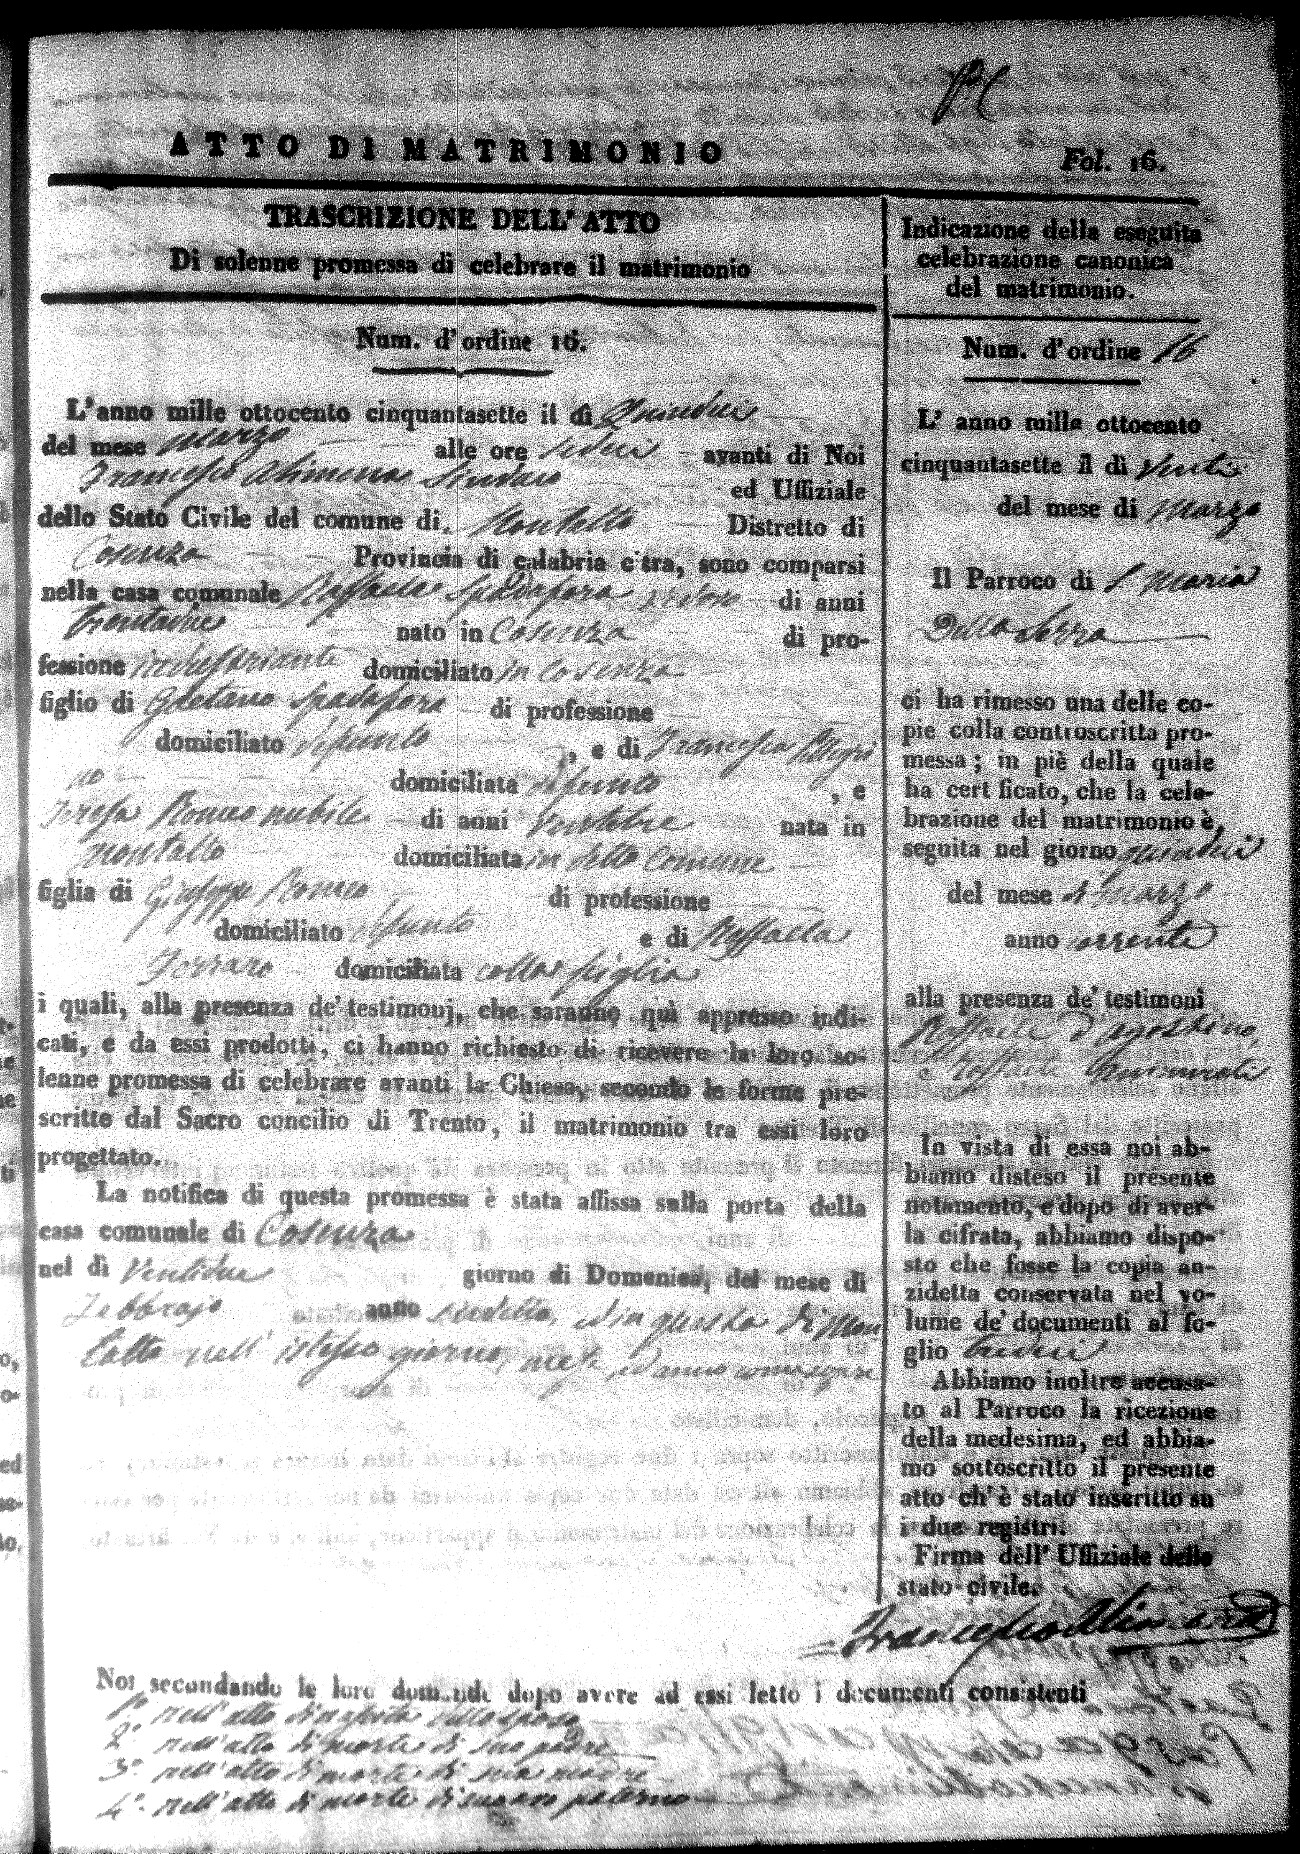 ATTO DI MATRIMONIO
Fol. 16.
TRASCRIZIONE DELL'ATTO
Di solenne promessa di celebrare il matrimonio
Num. d'ordine 16.
L'anno mille ottocento cinquantasette il dì Quindici
del mese marzo alle ore sedici avanti di Noi
Francesco Alimena Sindaco ed Uffiziale
dello Stato Civile del comune di Montalto Distretto di
Cosenza Provincia di calabria citra, sono comparsi
nella casa comunale Raffaele Spadafora di anni
trentadue nato in Cosenza di pro-
fessione industriante domiciliato in Cosenza
figlio di Gaetano Spadafora di professione
domiciliato defunto, e di Francesca
domiciliata defunta, e
Teresa Romeo nubile di anni ventitre nata in
Montalto domiciliata in detto Comune
figlia di Giuseppe Romeo di professione
domiciliato defunto e di Raffaela
Ferraro domiciliata colla figlia
i quali, alla presenza de' testimonj, che saranno quì appresso indi-
cati, e da essi prodotti, ci hanno richiesto di ricevere la loro so-
lenne promessa di celebrare avanti la Chiesa, secondo le forme pre-
scritte dal Sacro concilio di Trento, il matrimonio tra essi loro
progettato.
La notifica di questa promessa è stata affissa sulla porta della
casa comunale di Cosenza
nel dì Ventidue giorno di Domenica, del mese di
Febbrajo anno suddetto, ed in questa di Mon
talto nell'istesso giorno, mese, ed anno
Noi secondando le loro domande dopo avere ad essi letto i documenti consistenti
1º. nell'atto di nascita dello sposo
2º. nell'atto di morte di suo padre
3º. nell'atto di morte di sua madre
4º. nell'atto di morte di suo avo paterno
Indicazione della eseguita
celebrazione canonica
del matrimonio.
Num. d'ordine 16
L' anno mille ottocento
cinquantasette il dì venti
del mese di Marzo
Il Parroco di S. Maria
Della Serra
ci ha rimesso una delle co-
pie colla controscritta pro-
messa; in piè della quale
ha certificato, che la cele-
brazione del matrimonio è,
seguita nel giorno quindici
del mese di Marzo
anno corrente
alla presenza de' testimoni
Raffaele d'Agostino,
e Raffaele
In vista di essa noi ab-
biamo disteso il presente
notamento, e dopo di aver-
la cifrata, abbiamo dispo-
sto che fosse la copia an-
zidetta conservata nel vo-
lume de' documenti al fo-
glio
Abbiamo inoltre accusa-
to al Parroco la ricezione
della medesima, ed abbia-
mo sottoscritto il presente
atto ch'è stato inscritto su
i due registri.
Firma dell' Uffiziale dello
stato civile.
Francesco Alimena